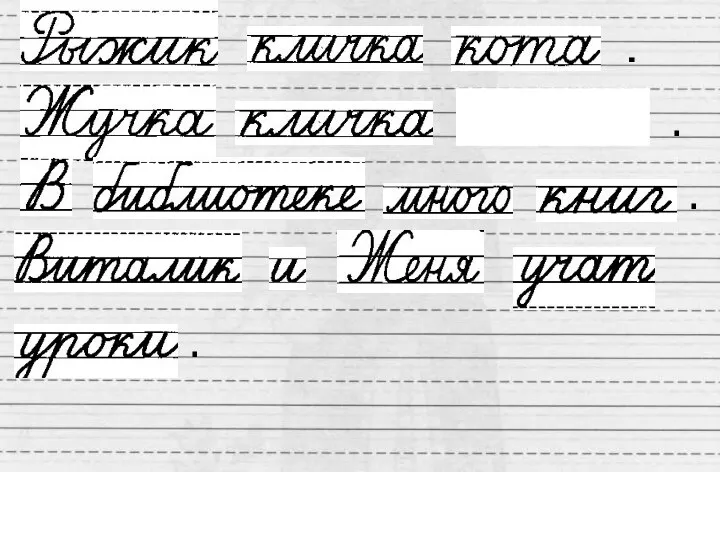 Рыжик кличка кота .
Жучка кличка .
В библиотеке много книг .
Виталик и Женя учат
уроки .